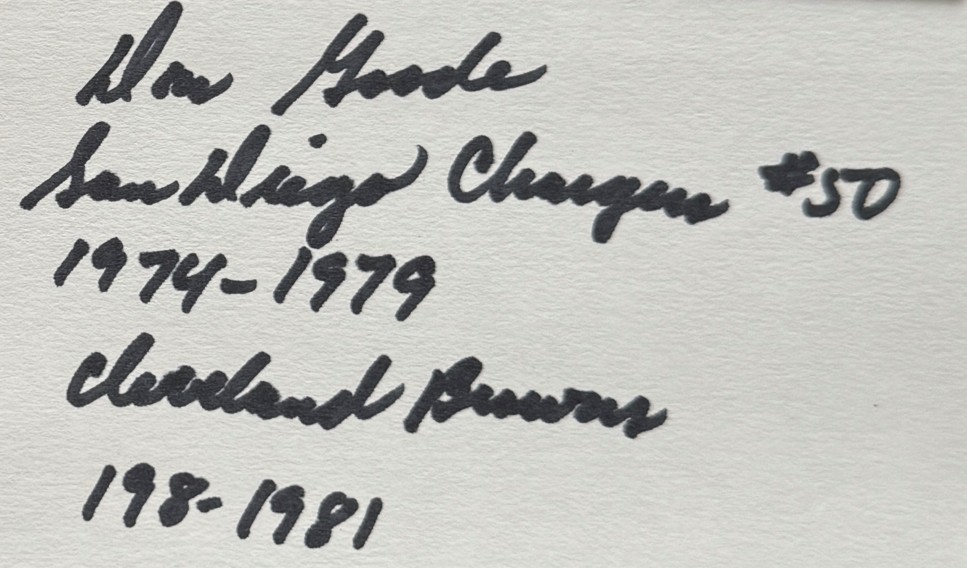 Don Goode
San Diego Chargers #50
1974-1979
Cleveland Browns
198-1981